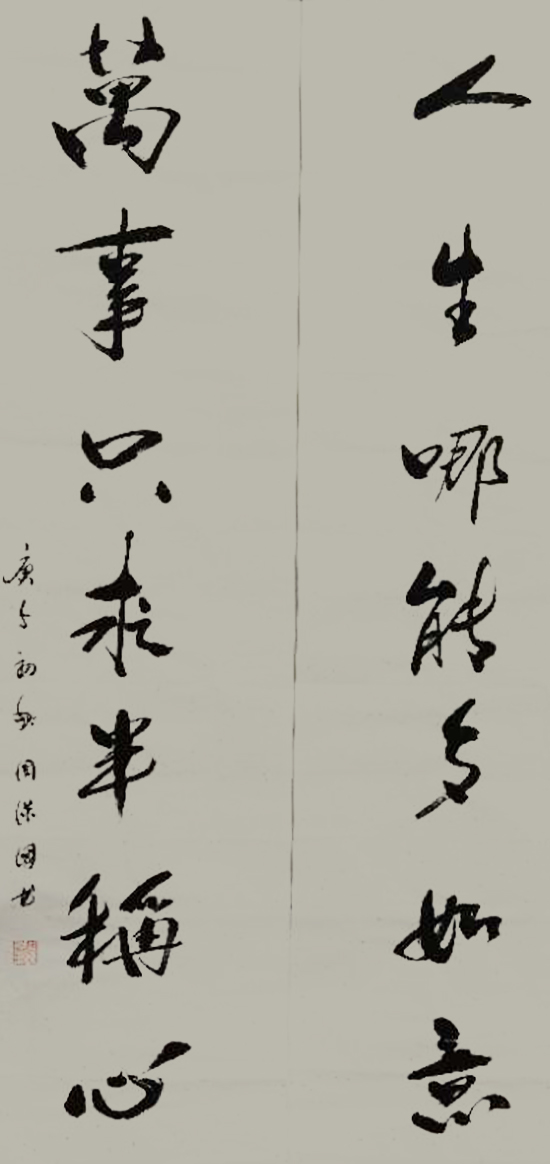 人生哪能多如意
萬事只求半稱心
庚子初魚周洪國书